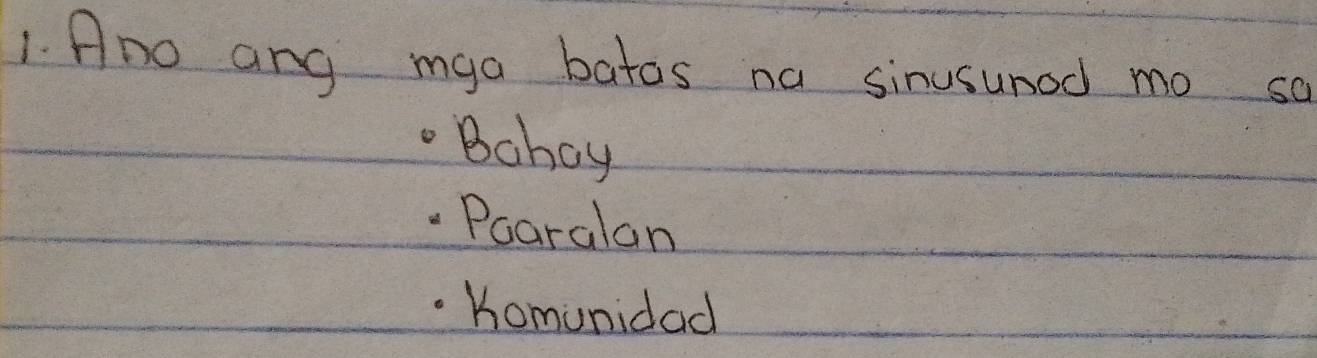 1. Ano ang mga batas na sinusunod mo sa
• Bahay
• Paaralan
• Komunidad